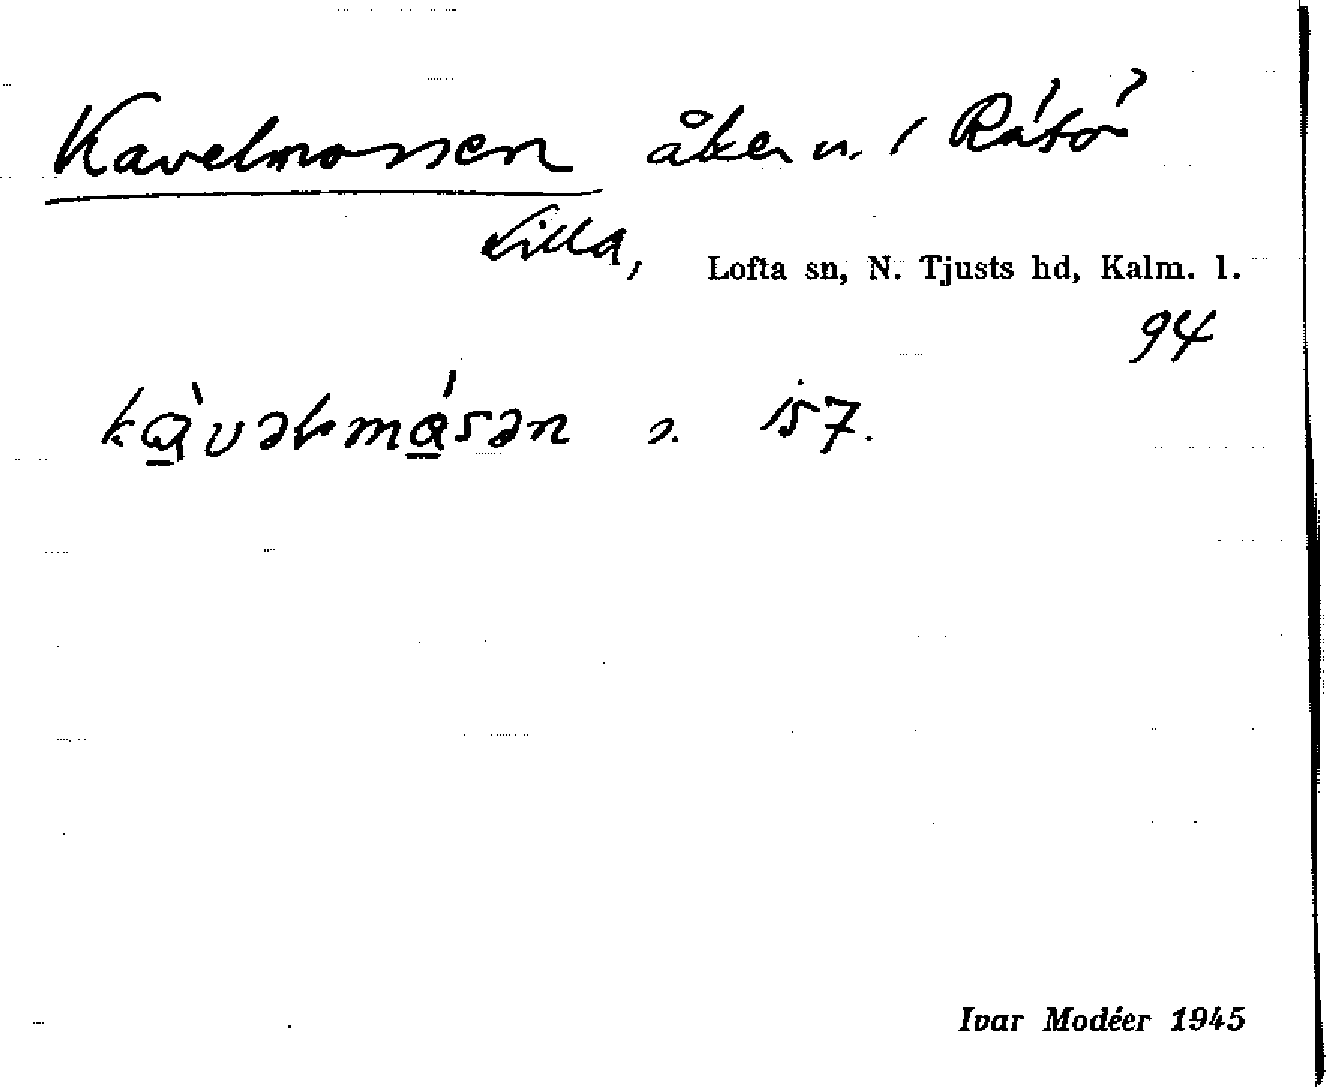 Kavelmossen åker n. i Råtö
Lilla, Lofta sn, N. Tjusts hd, Kalm. l.
94
kàvəlmásən s. 157.
Ivar Modéer 1945